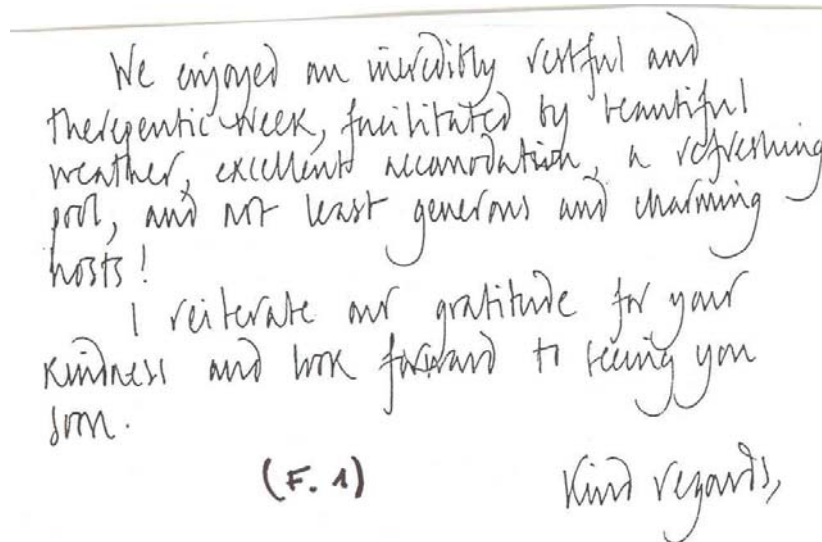 We enjoyed an incredibly restful and
therepentic week, facilitated by beautiful
weather, excellent accomodation, a refreshing
pool, and not least generous and charming
hosts!
I reiterate our gratitude for your
kindness and look forward to seeing you
soon.
(F. 1)
Kind regards,